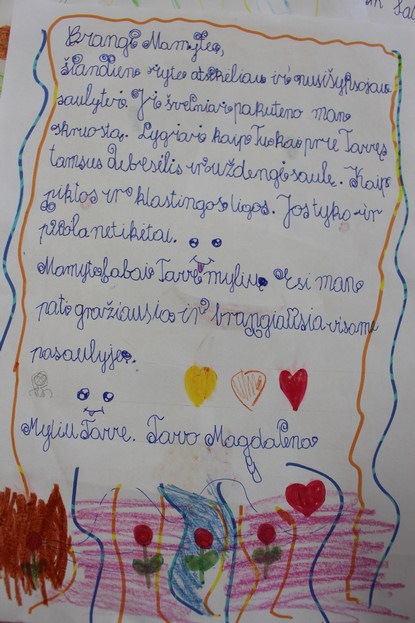 Brangi Mamyte,
šiandien ryte atsikėliau ir nusišypsojau
saulytei. Ji švelniai pakuteno man
skruostą. Lygiai kaip Tu kai prie Tavęs
tamsus debesėlis ir uždengė saulę. Kaip
piktos ir klastingos ligos. Jos tyko ir
netikėtai.
Mamyte labai Tave myliu. Esi man
pati gražiausia ir brangiausia visame
pasaulyje.
Myliu Tave. Tavo Magdalena